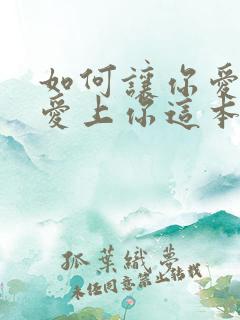 如何讓你愛
愛上你這本
孤葉織夢
未经同意禁止转载